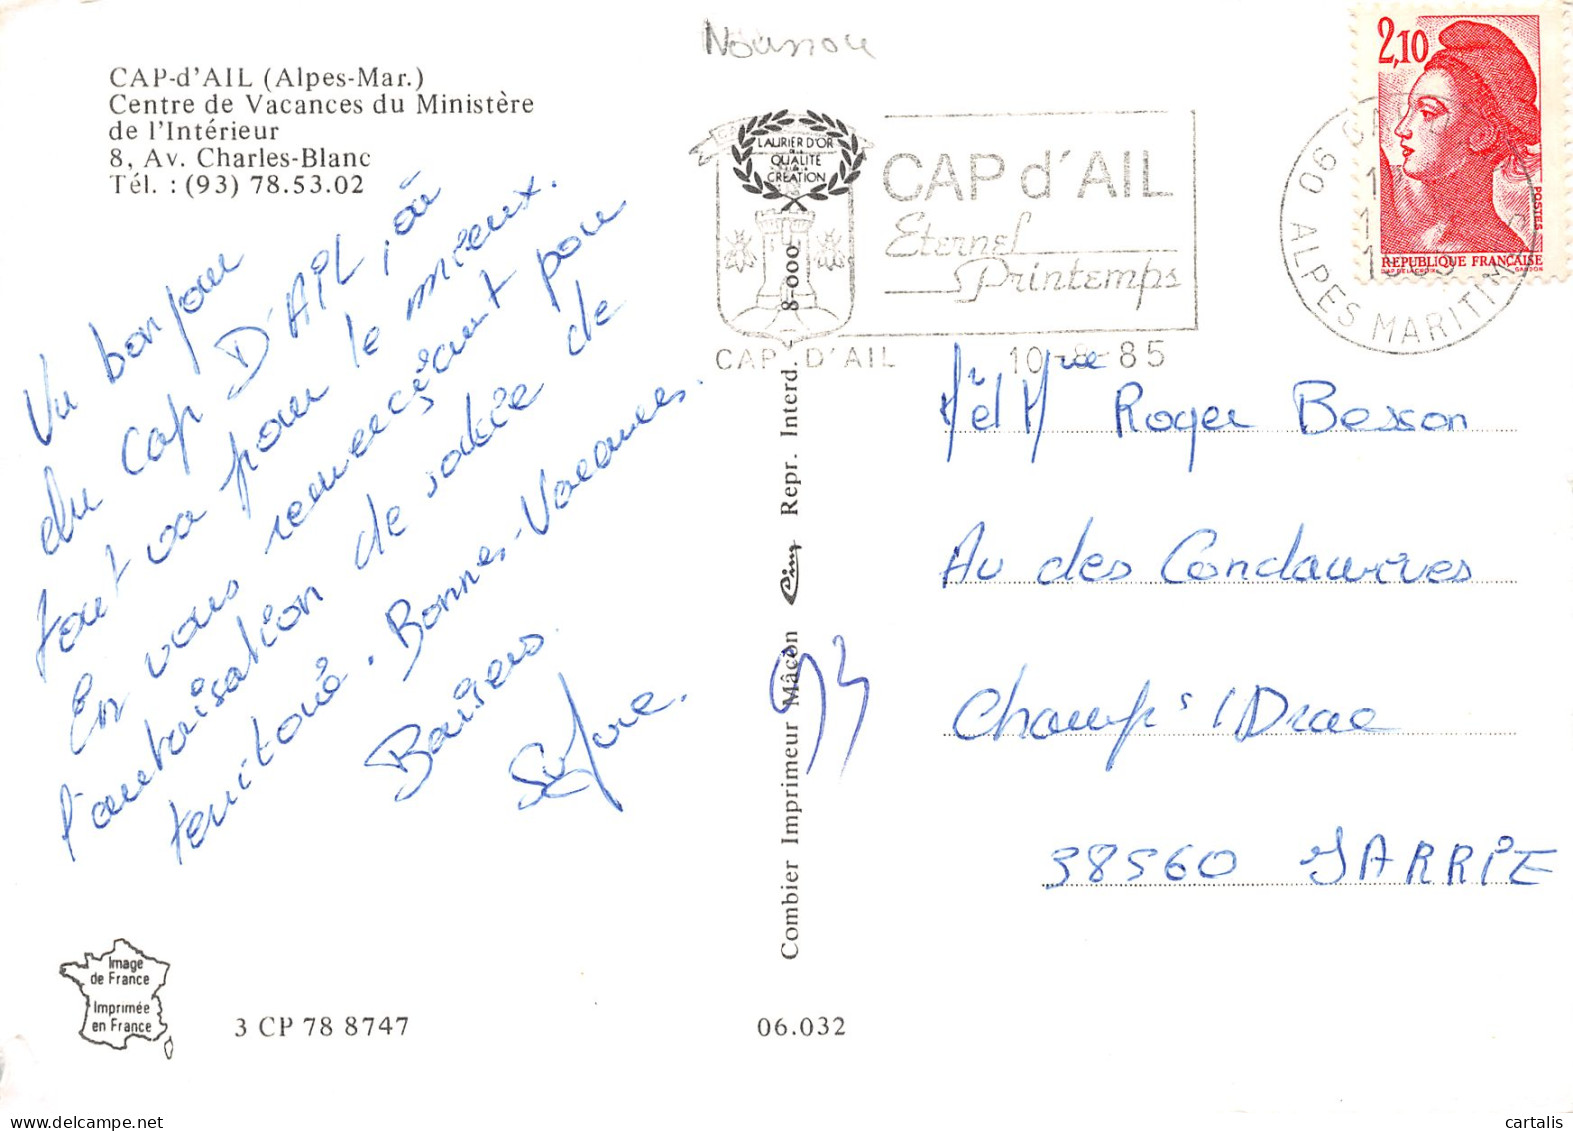 CAP-d'AIL (Alpes-Mar.)
Centre de Vacances du Ministère
de l'Intérieur
8, Av. Charles-Blanc
Tél. : (93) 78.53.02
Un bonjour
du Cap D'AIL, où
tout va pour le mieux.
En vous remerçiant pour
l'autorisation de sortie de
territoire. Bonnes-Vacances.
Baisers.
LAURIER D'OR
DE LA
QUALITÉ
CRÉATION
CAP d'AIL
Eternel
Printemps
CAP D'AIL 10-8-85
06 ALPES MARITIMES
2,10
POSTES
REPUBLIQUE FRANÇAISE
Combier Imprimeur Mâcon Cim Repr. Interd. - 8-000
93
M et Mme Roger Besson
Av des Condamines
Champ s/Drac
38560 JARRIE
Image
de France
Imprimée
en France
3 CP 78 8747
06.032
cartalis